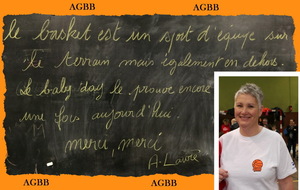 AGBB AGBB
le basket est un sport d'équipe sur
le terrain mais également en dehors.
Le baby day le prouve encore
une fois aujourd'hui.
merci, merci
A. Laure
AGBB AGBB